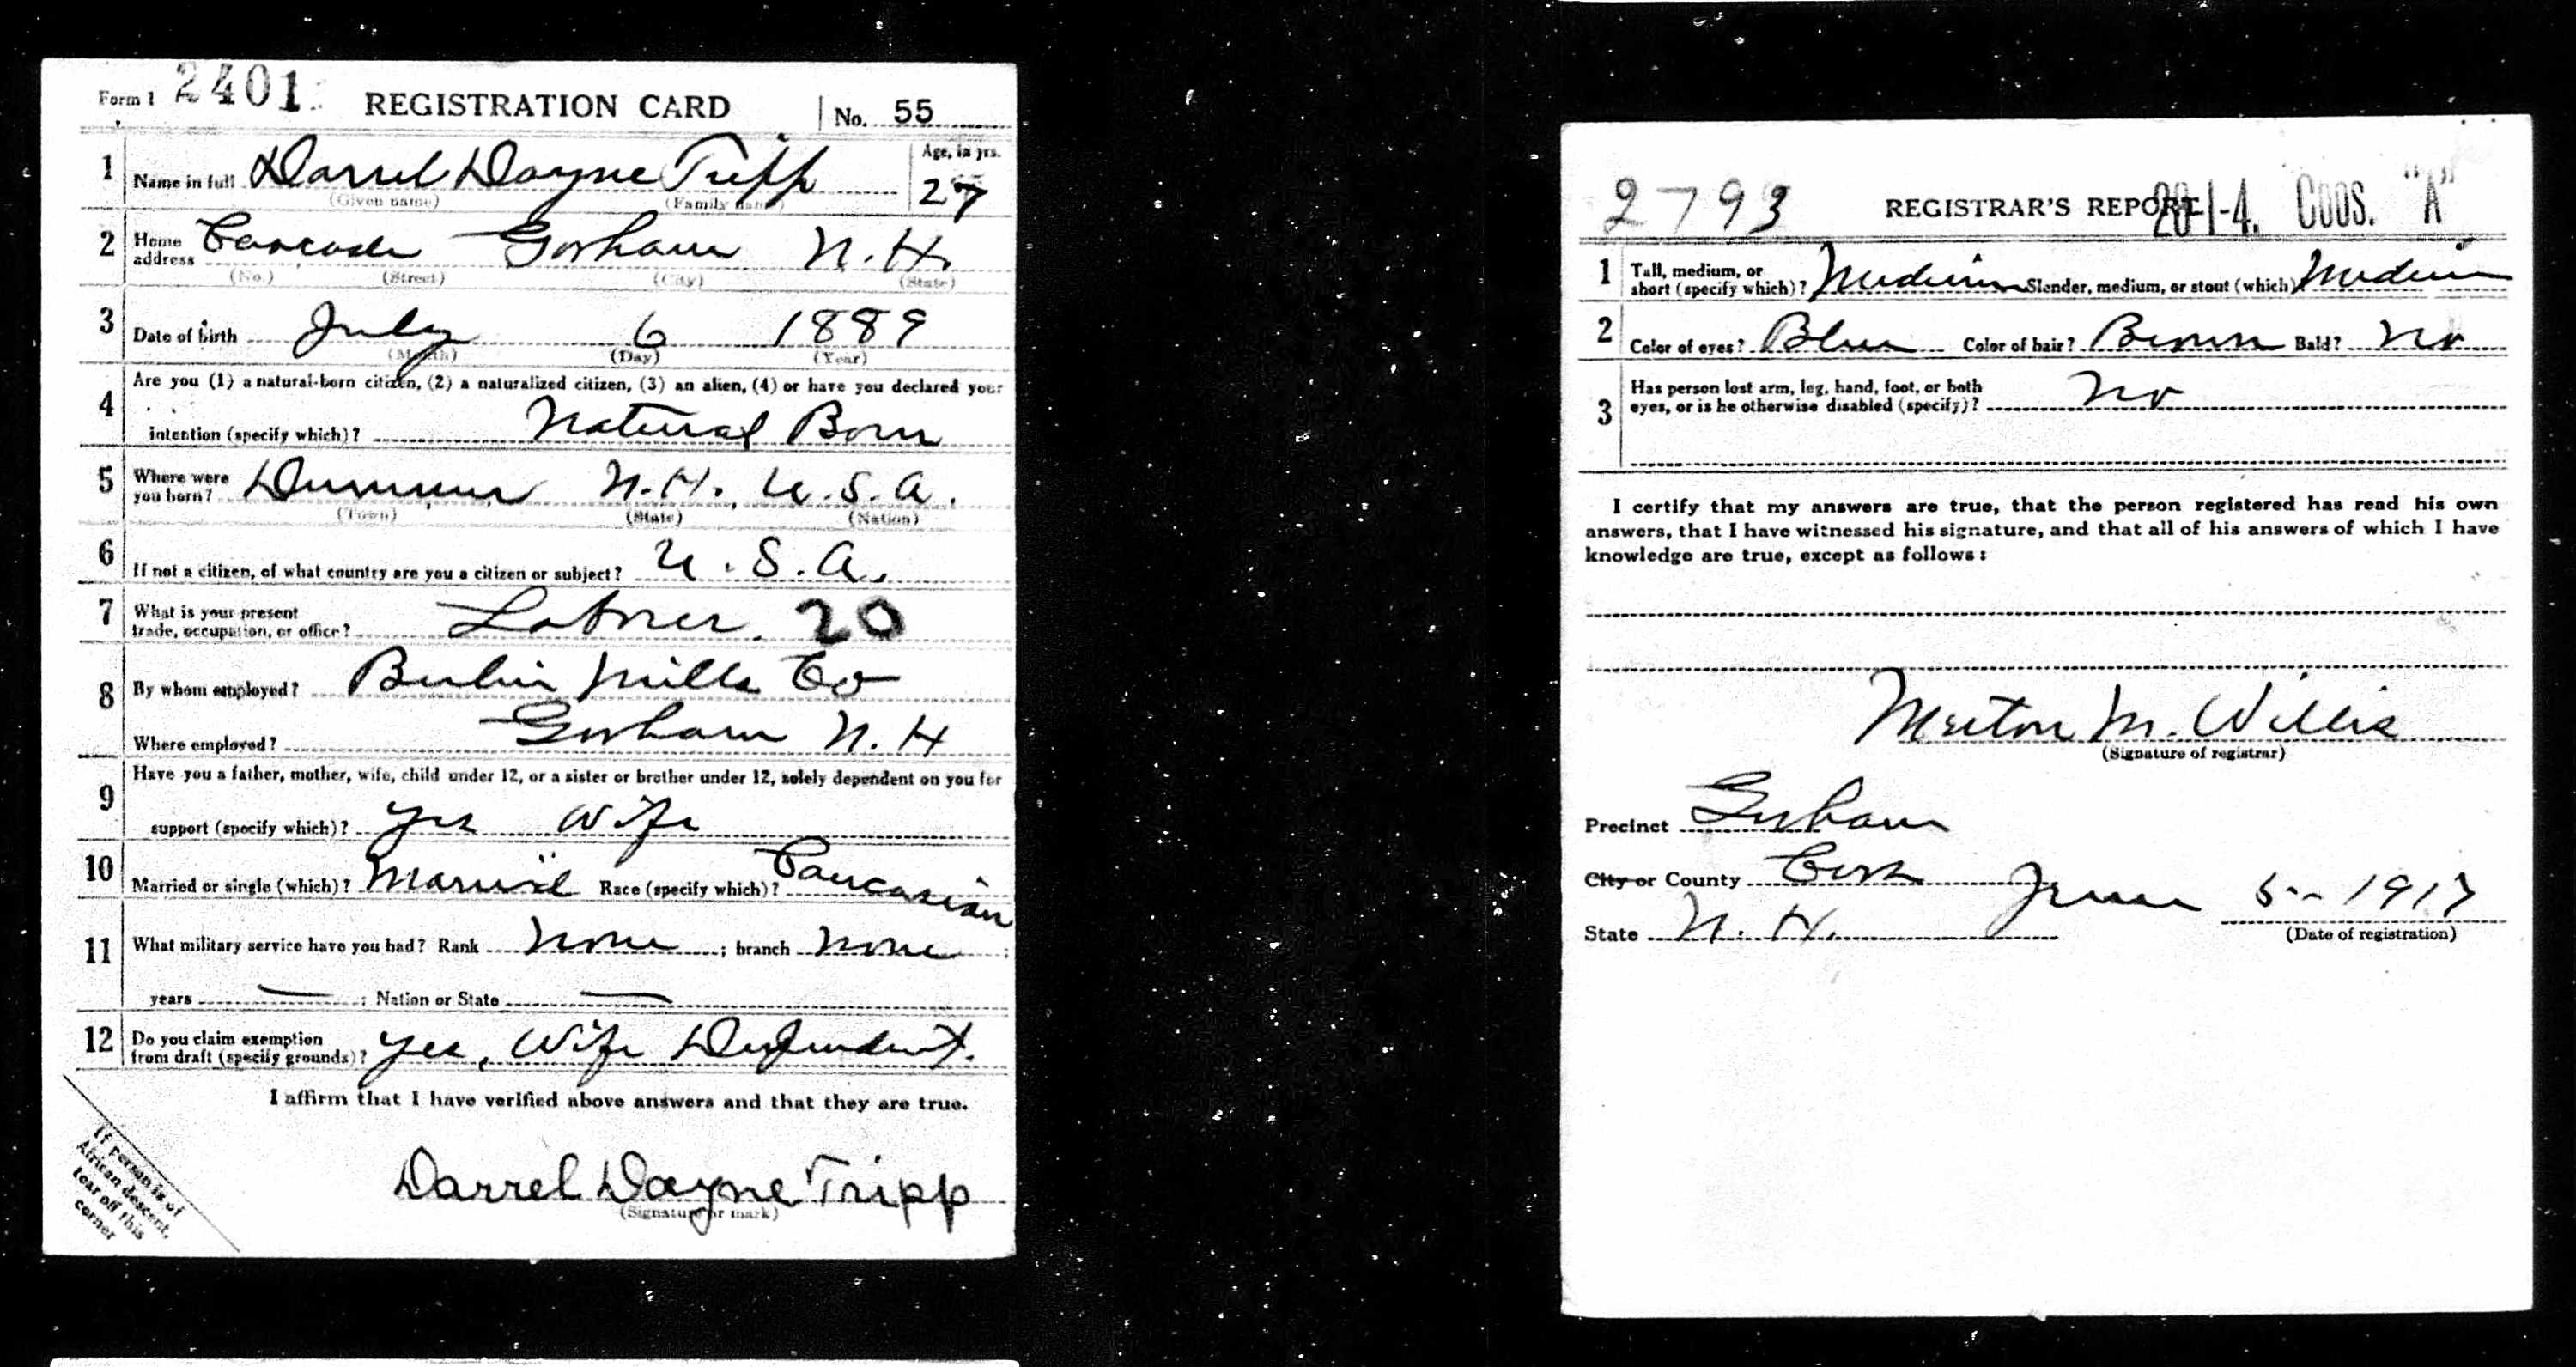 Form 1 2401 REGISTRATION CARD No. 55
1 Name in full Darrel Dayne Tripp Age, in yrs. 27
(Given name) (Family name)
2 Home address Cascade Gorham N.H.
(No.) (Street) (City) (State)
3 Date of birth July 6 1889
(Month) (Day) (Year)
4 Are you (1) a natural-born citizen, (2) a naturalized citizen, (3) an alien, (4) or have you declared your
intention (specify which)? Natural Born
5 Where were you born? Dummer N.H. U.S.A.
(Town) (State) (Nation)
6 If not a citizen, of what country are you a citizen or subject? U.S.A.
7 What is your present trade, occupation, or office? Laborer. 20
8 By whom employed? Berlin Mills Co
Where employed? Gorham N.H
9 Have you a father, mother, wife, child under 12, or a sister or brother under 12, solely dependent on you for
support (specify which)? Yes Wife
10 Married or single (which)? Married Race (specify which)? Caucasian
11 What military service have you had? Rank None ; branch None ;
years — ; Nation or State —
12 Do you claim exemption from draft (specify grounds)? Yes, Wife Dependent.
I affirm that I have verified above answers and that they are true.
Darrel Dayne Tripp
(Signature or mark)
If person is of
African descent,
tear off this
corner
2793 REGISTRAR'S REPORT 28-1-4. COOS. "A"
1 Tall, medium, or short (specify which)? Medium Slender, medium, or stout (which) Medium
2 Color of eyes? Blue Color of hair? Brown Bald? No
3 Has person lost arm, leg, hand, foot, or both
eyes, or is he otherwise disabled (specify)? No
I certify that my answers are true, that the person registered has read his own
answers, that I have witnessed his signature, and that all of his answers of which I have
knowledge are true, except as follows:
Merton M. Willis
(Signature of registrar)
Precinct Gorham
City or County Coos
State N. H. June 5 - 1917
(Date of registration)